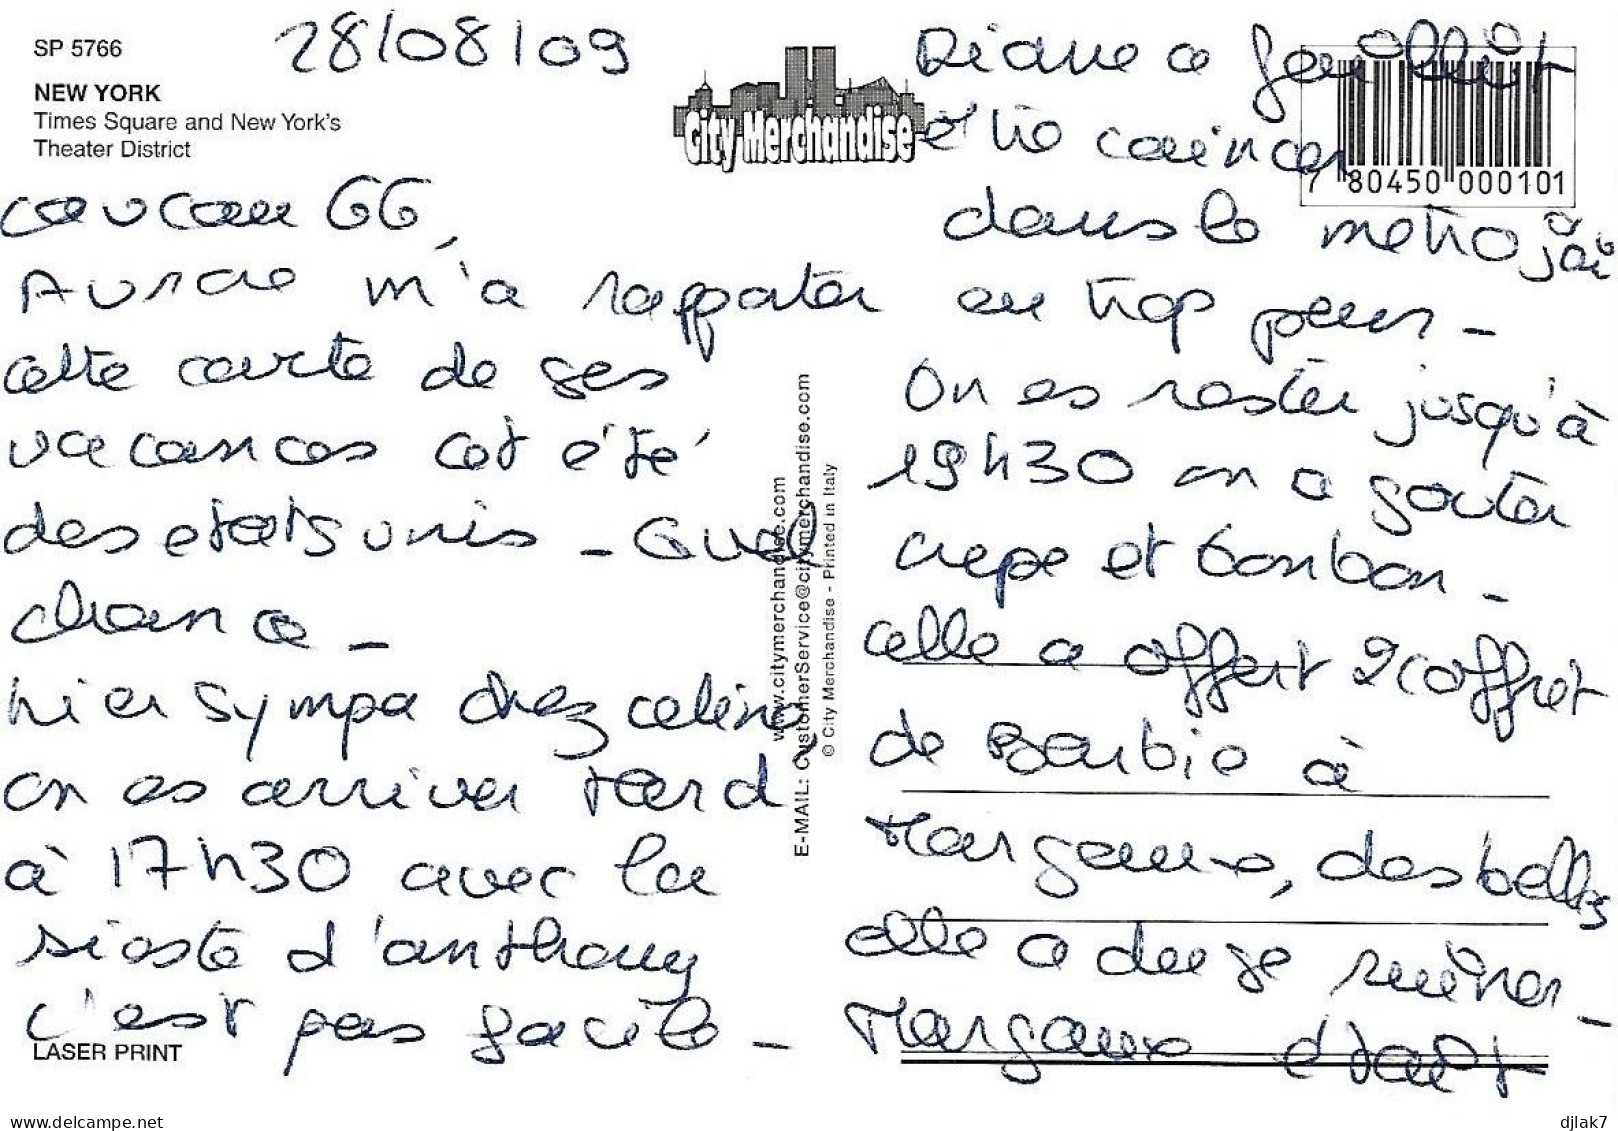 SP 5766
28/08/09
NEW YORK
Times Square and New York's
Theater District
City Merchandise
coucou GG,
Aurore m'a rapporter
cette carte de ses
vacances cet été
des etats unis - Quel
chance -
hier sympa chez celine
on es arriver tard
à 17h30 avec la
sieste d'anthony
c'est pas facile -
LASER PRINT
www.citymerchandise.com
E-MAIL: CustomerService@citymerchandise.com
© City Merchandise - Printed in Italy
7 80450 000101
Diane a faillit
être coincer
dans le metro j'ai
eu trop peur -
On es rester jusqu'à
19h30 on a gouter
crepe et bonbon -
celle a offert 2 coffret
de Barbie à
Margaux, des belles
elle a du se ruiner -
Margaux était
delcampe.net
djlak7